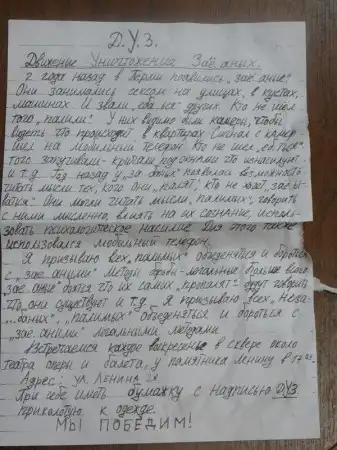 Д.У.З.
Движение Уничтожения Зае.аных.
2 года назад в Перми появились „зае.аные".
Они занимались сексом на улицах, в кустах,
машинах. И звали „еба.ься" других. Кто не шел
того „палили". У них видимо был камеры, чтобы
видеть что происходит в квартирах. Сигнал с камер
шел на мобильный телефон. Кто не шел „еб.ться"
того запугивали - кричали под окнами что изнасилуют
и т.д. Год назад у „за.баных" появилась возможность
читать мысли тех, кого они „палят", кто не хочет
Они могли читать мысли „палимых", говорить
с ними мысленно, влиять на их сознание, исполь-
зовать психологическое насилие. Для этого также
использовался мобильный телефон.
Я призываю всех „палимых" объеденятся и бороться
с „зае.аными". Методы борьбы - легальные. Больше всего
зае.аные боятся что их самих „пропалят" - будут говорить
что они существуют и т.д. Я призываю всех „Неза-
„палимых" объеденяться и бороться с
„зае.аными" легальными методами.
Встречаемся каждое воскресенье в сквере около
театра оперы и балета, у памятника Ленину в
Адрес: ул. Ленина
При себе иметь бумажку с надписью Д.У.З.
приколотую к одежде.
МЫ ПОБЕДИМ!